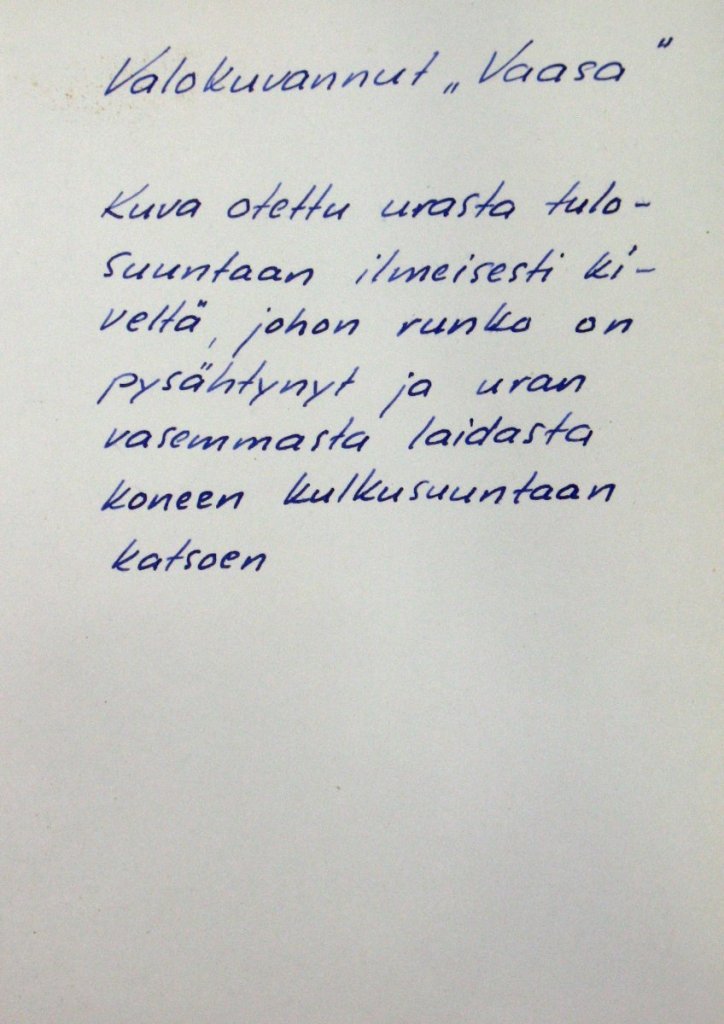 Valokuvannut „Vaasa”
Kuva otettu urasta tulo-
suuntaan ilmeisesti ki-
veltä, johon runko on
pysähtynyt ja uran
vasemmasta laidasta
koneen kulkusuuntaan
katsoen